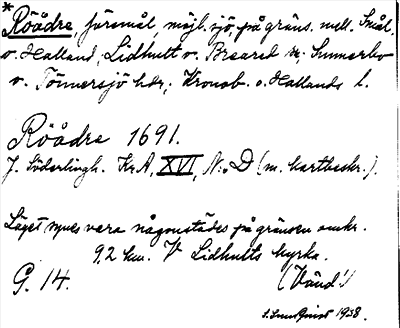 *Röådre, färsmål, möjl. sjö, på gräns. mell. Smål.
o. Halland, Lidhult o. Breared sn; Sunnerbo
o. Tönnersjö hdr; Kronob. o. Hallands l.
Röådre 1691.
J. Söderlingh. KrA, XVI, N:o D (m. kartbeskr.).
Läget synes vara någonstädes på gränsen omkr.
9,2 km. V Lidhults kyrka.
G. 14. (Vänd!)
1938.